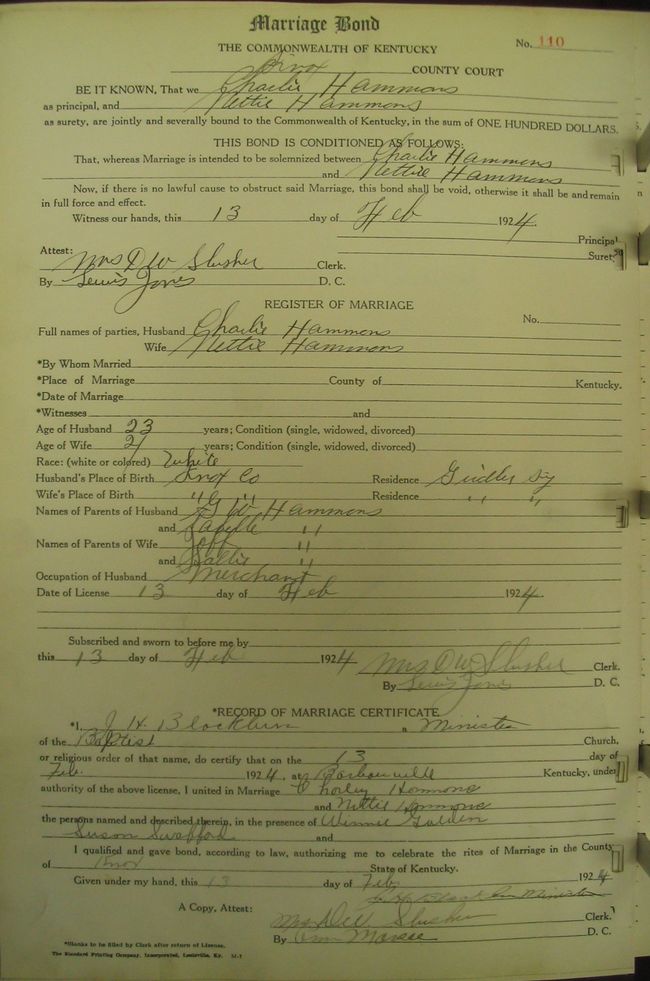 Marriage Bond
THE COMMONWEALTH OF KENTUCKY
No. 110
Knox COUNTY COURT
BE IT KNOWN, That we Charlie Hammons
as principal, and Nettie Hammons
as surety, are jointly and severally bound to the Commonwealth of Kentucky, in the sum of ONE HUNDRED DOLLARS.
THIS BOND IS CONDITIONED AS FOLLOWS:
That, whereas Marriage is intended to be solemnized between Charlie Hammons
and Nettie Hammons
Now, if there is no lawful cause to obstruct said Marriage, this bond shall be void, otherwise it shall be and remain
in full force and effect.
Witness our hands, this 13 day of Feb 1924.
Principal
Surety
Attest:
Mrs D W Slusher Clerk.
By Lewis Jones D. C.
REGISTER OF MARRIAGE
No.
Full names of parties, Husband Charlie Hammons
Wife Nettie Hammons
*By Whom Married
*Place of Marriage County of Kentucky.
*Date of Marriage
*Witnesses and
Age of Husband 23 years; Condition (single, widowed, divorced)
Age of Wife 21 years; Condition (single, widowed, divorced)
Race: (white or colored) White
Husband's Place of Birth Knox Co Residence Girdler Ky
Wife's Place of Birth " " Residence " "
Names of Parents of Husband G W Hammons
and "
Names of Parents of Wife Jeff "
and Sallie "
Occupation of Husband Merchant
Date of License 13 day of Feb 1924.
Subscribed and sworn to before me by
this 13 day of Feb 1924 Mrs D W Slusher Clerk.
By Lewis Jones D. C.
*RECORD OF MARRIAGE CERTIFICATE
*I, J. H. Blackburn a Minister
of the Baptist Church,
or religious order of that name, do certify that on the 13 day of
Feb. 1924, at Barbourville Kentucky, under
authority of the above license, I united in Marriage Charley Hammons
and Nettie Hammons
the persons named and described therein, in the presence of Winnie Golden
Susan Swafford and
I qualified and gave bond, according to law, authorizing me to celebrate the rites of Marriage in the County
of Knox State of Kentucky.
Given under my hand, this 13 day of Feb. 1924
Minister
A Copy, Attest:
Mrs D W Slusher Clerk.
By D. C.
*Blanks to be filled by Clerk after return of License.
The Standard Printing Company, Incorporated, Louisville, Ky. M-7